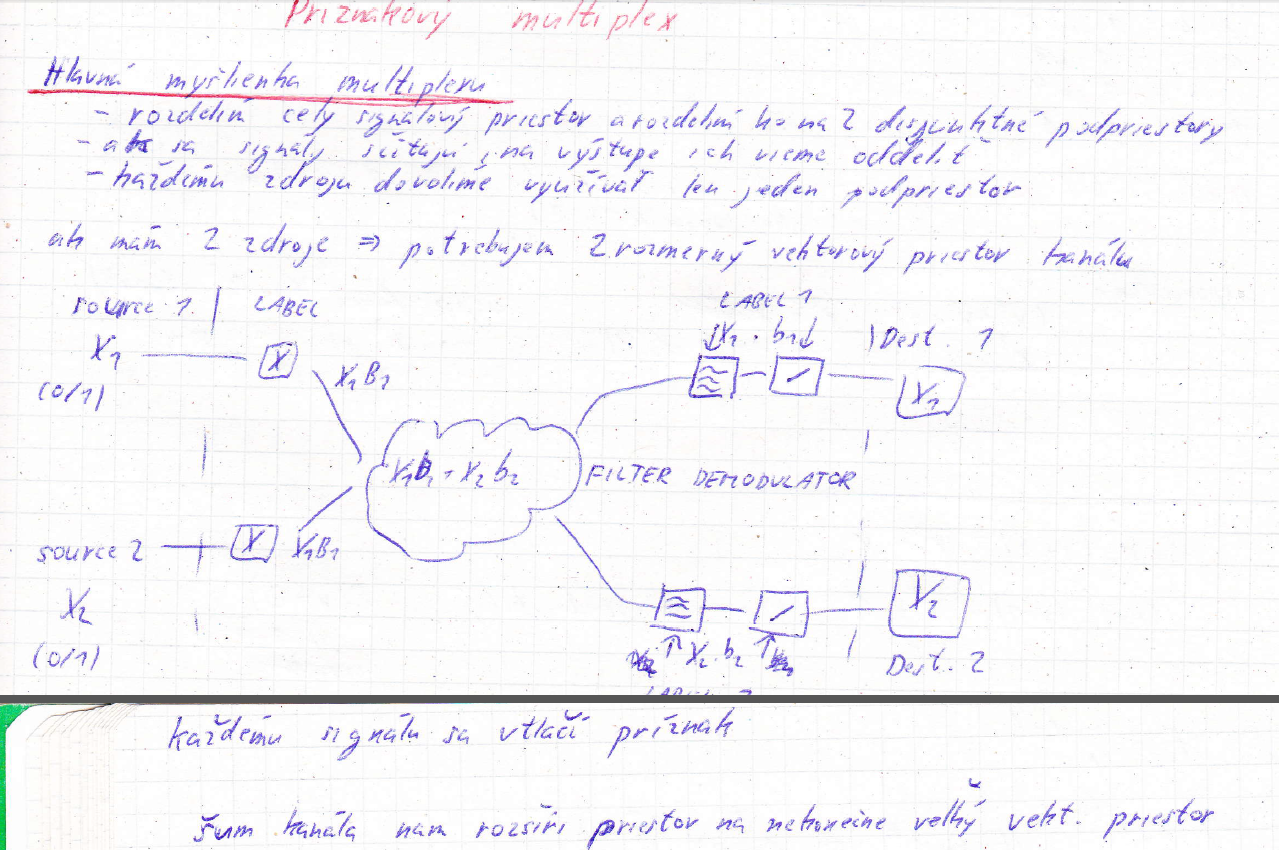 Príznakový multiplex
Hlavná myšlienka multiplexu
- rozdelím celý signálový priestor a rozdelím ho na 2 disjunktné podpriestory
- ak sa signály sčítajú, na výstupe ich vieme oddeliť
- každému zdroju dovolíme využívať len jeden podpriestor
ak mám 2 zdroje ⇒ potrebujem 2 rozmerný vektorový priestor kanálu
source 1 | LABEL
LABEL 1
X1 X X1B1
X1 . b1 | Dest. 1
X1
(0/1)
X1b1 + X2b2
FILTER DEMODULATOR
source 2 X X1B1
X2
X2
(0/1)
X2 . b2
Dest. 2
LABEL 2
každému signálu sa vtlačí príznak
šum kanála nam rozšíri priestor na nekonečne veľký vekt. priestor